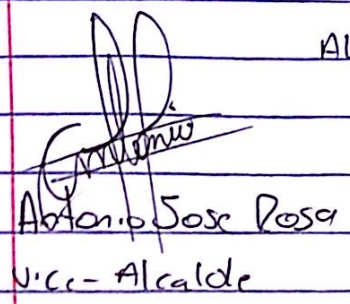 Al
Antonio
Antonio Jose Rosa
Vice-Alcalde